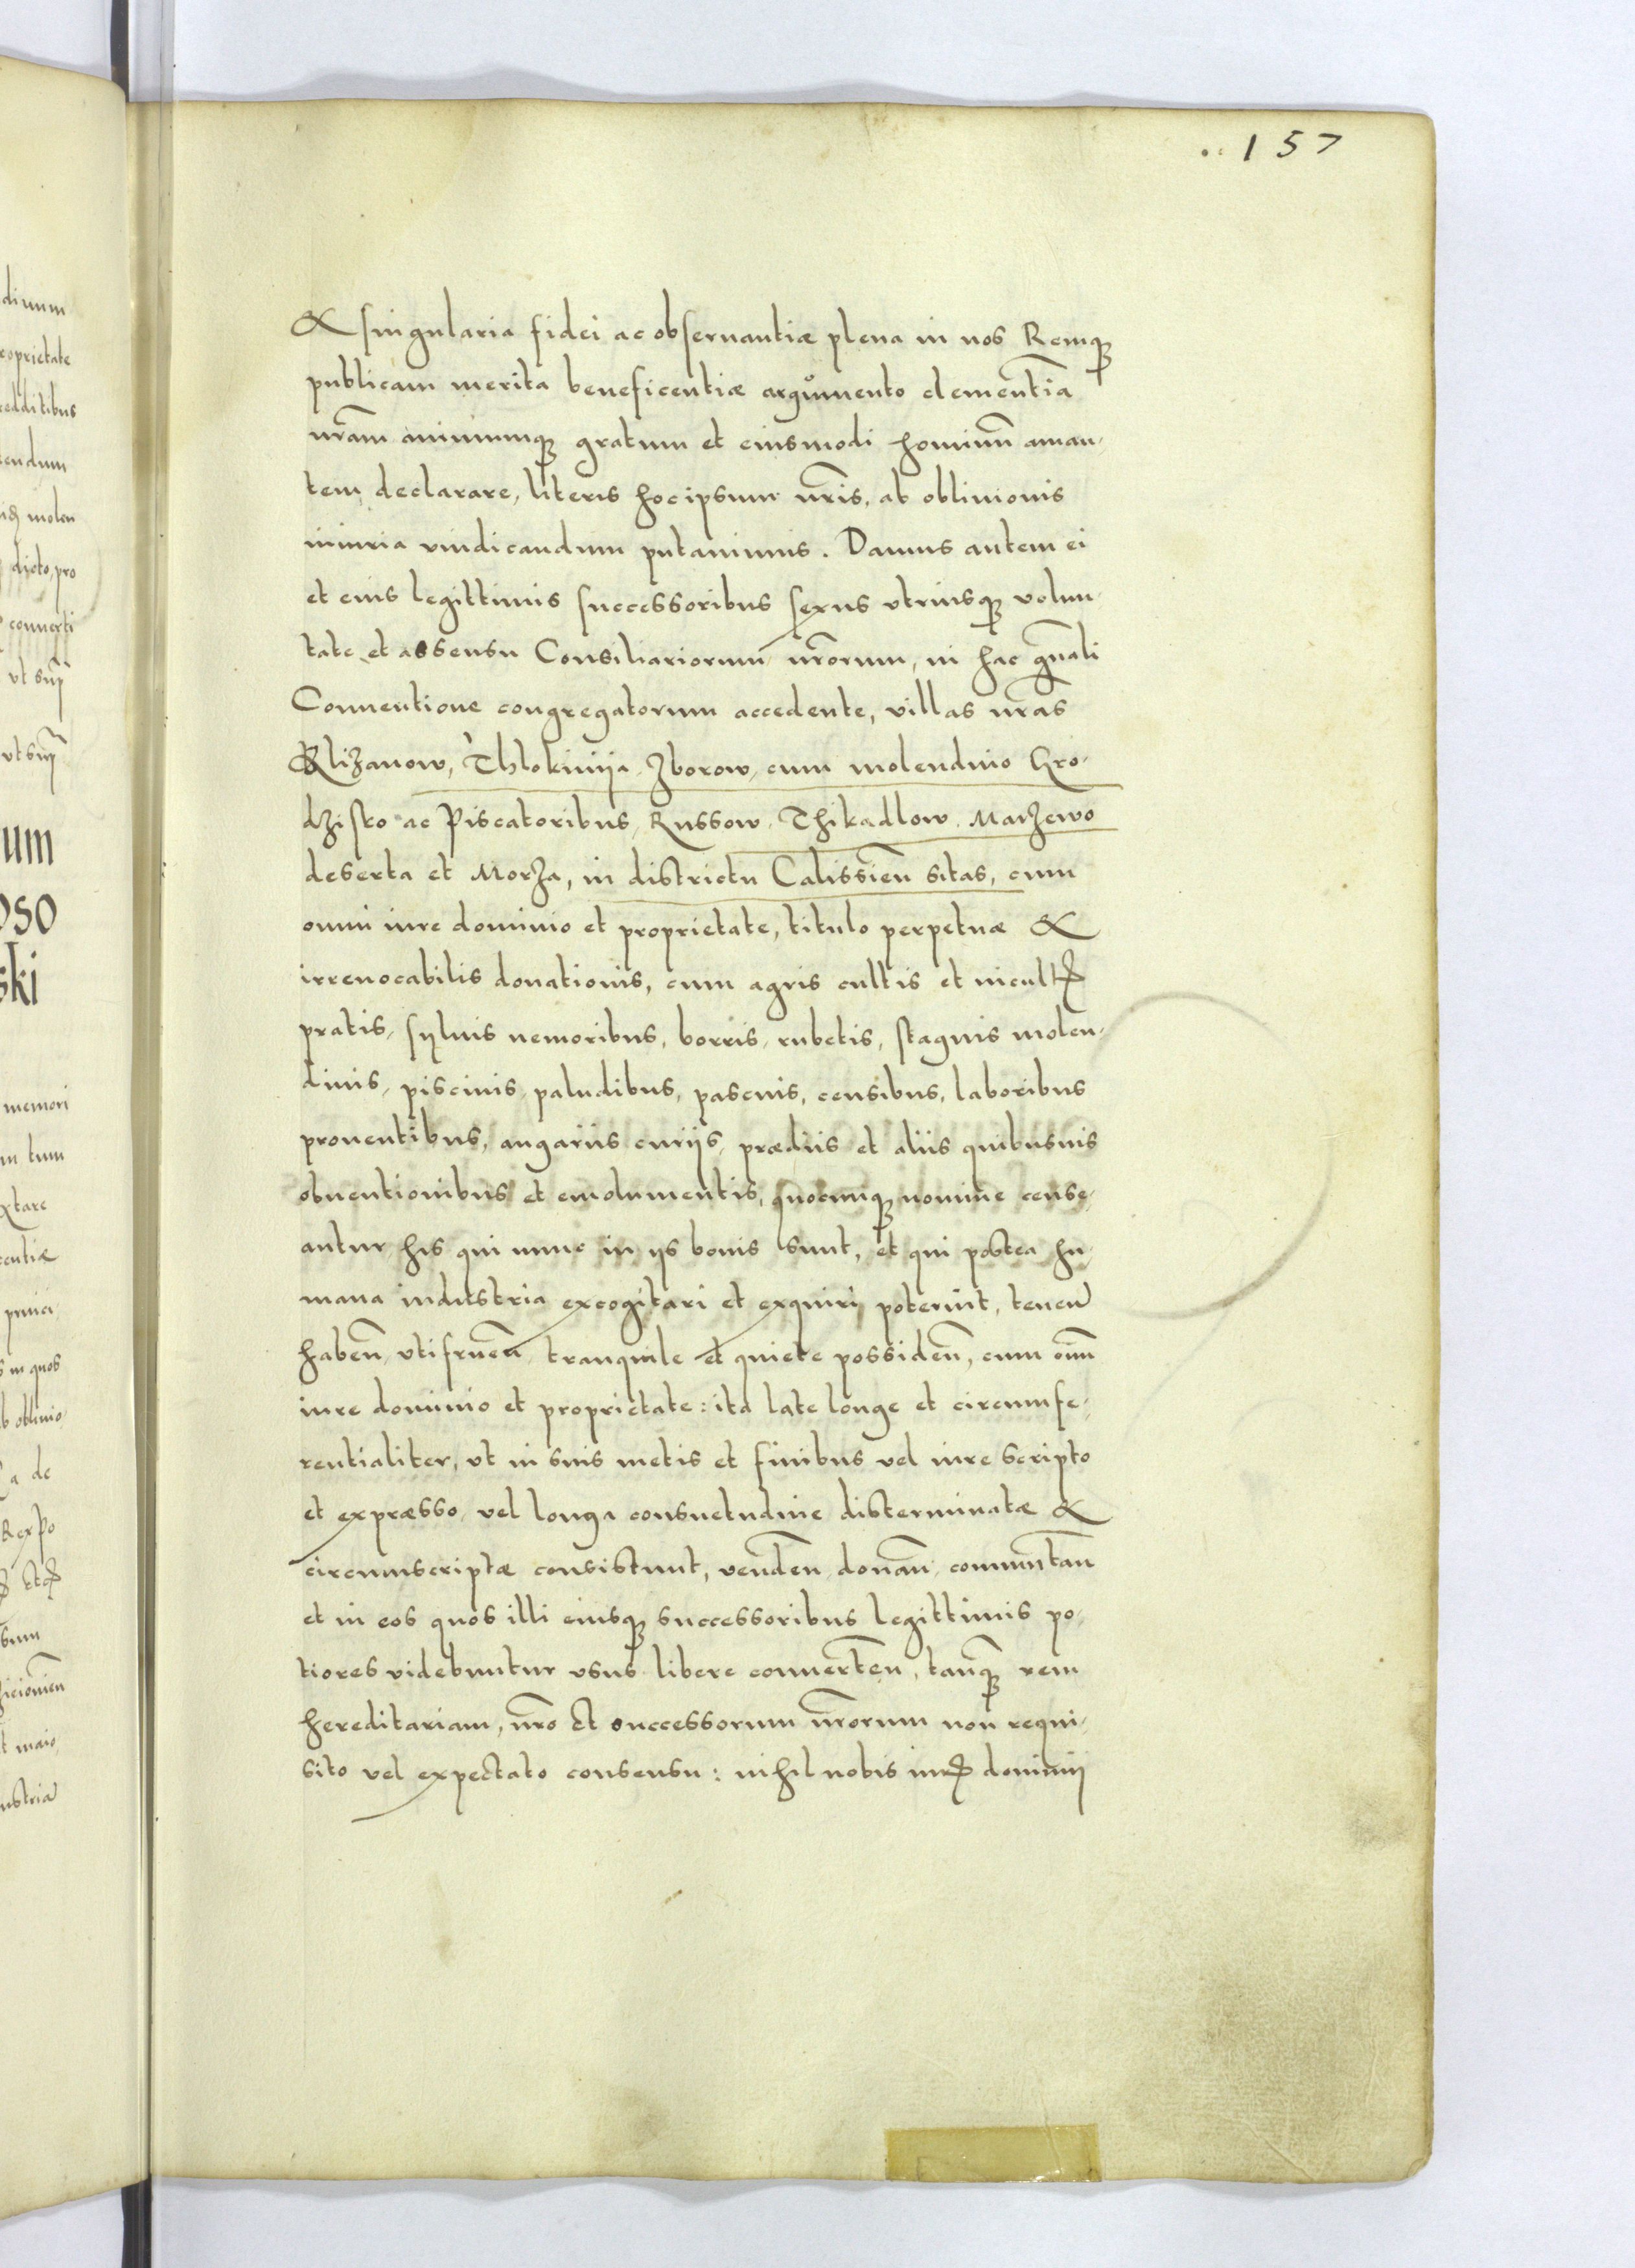 157
& singularia fidei ac obseruantiæ plena in nos Remqꝫ
publicam merita beneficentiæ argumento clementia
nr̃am animumqꝫ gratum et eiusmodi hominũ aman,
tem declarare, literis hoc ipsum nr̃is, ab obliuionis
iniuria vindicandum putauimus. Damus autem ei
et eius legittimis successoribus sexus vtriusqꝫ volun,
tate et assensu Consiliariorum nr̃orum, in hac gñali
Conuentione congregatorum accedente, villas nr̃as
Thlokinija Zborow, cum molendino Gro,
dzisko ac Piscatoribus, Russow, Thikadlow, Marzewo
deserta et Morza, in districtu Calissien̄ sitas, cum
omni iure dominio et proprietate, titulo perpetuæ &
irreuocabilis donationis, cum agris cultis et incultꝭ
pratis, syluis nemoribus, borris, rubetis, stagnis molen,
dinis, piscinis, paludibus, pascuis, censibus, laboribus
prouentibus, angariis curijs, prædiis et aliis quibusuis
obuentionibus et emolumentis, quocunqꝫ nomine cense,
antur, his qui nunc in ijs bonis sunt, et qui postea hu,
mana industria excogitari et exquiri poterint, tenen̄
haben̄, vtifruen̄, tranquile et quiete possiden̄, cum om̄i
iure dominio et proprietate: ita late longe et circumfe,
rentialiter, vt in suis metis et finibus vel iure scripto
et expræsso, vel longa consuetudine disterminatæ &
circumscriptæ consistunt, venden̄, donan̄, commutan̄
et in eos quos illi eiusqꝫ successoribus legittimis po,
tiores videbuntur vsus libere conuerten̄, tanqꝫ rem
hereditariam, nr̃o et successorum nr̃orum non requi,
sito vel expectato consensu: nihil nobis iurꝭ dominij